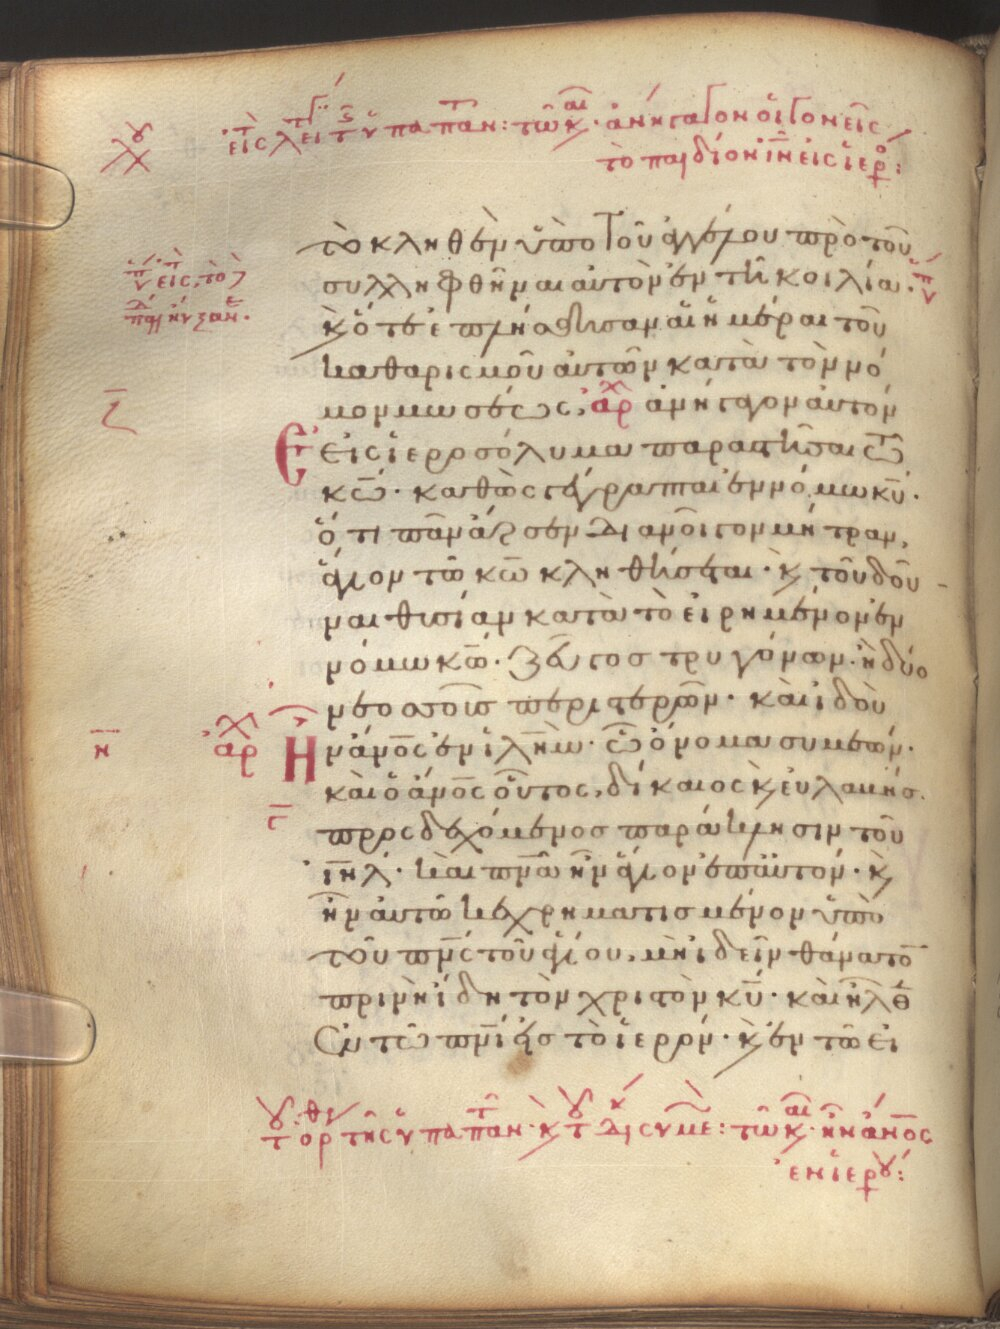 εἰς τὴν λειτ τῆς ὑπαπαν: τῶ κ. ἀνήγαγον οἱ γονεῖς
τὸ παιδίον ἰν εἰς ἱερ:
τὸ κληθὲν ὑπὸ τοῦ ἀγγέλου πρὸ τοῦ
συλληφθῆναι αὐτὸν ἐν τῆ κοιλία.
κ ὅτε ἐπλήσθησαν αἱ ἡμέραι τοῦ
καθαρισμοῦ αὐτῶν κατὰ τὸν νό
μον μωσέως, ἀρχ ἀνήγαγον αὐτὸν
Εἰς ἱεροσόλυμα παραστῆσαι τῶ
κω. καθὼς γέγραπται ἐν νόμω κυ.
ὅτι πᾶν ἄρσεν διανοῖγον μήτραν,
ἅγιον τῶ κω κληθήσεται. κ τοῦ δοῦ
ναι θυσίαν κατὰ τὸ εἰρημένον ἐν
νόμω κω. ζεῦγος τρυγόνων. ἢ δύο
νεοσσοὺς περιστερῶν. καὶ ἰδοὺ
Ἦν ἀνος ἐν ἱλημ. ὧ ὄνομα συμεών.
καὶ ὁ ἀνος οὗτος, δίκαιος κ εὐλαβής.
προσδεχόμενος παράκλησιν τοῦ
ιηλ. καὶ πνα ἦν ἅγιον ἐπ αὐτόν. κ
ἦν αὐτῶ κεχρηματισμένον ὑπὸ
τοῦ πνς τοῦ ἁγίου, μὴ ἰδεῖν θάνατο
πρὶν ἢ ἴδη τὸν χριστὸν κυ. καὶ ἦλθε
ἐν τῶ πνι εἰς τὸ ἱερόν. κ ἐν τῶ εἰ
ἀρχ
η
τ ὀρθ τῆς ὑπαπαν. κ τ δι συμε: τῶ κ. ἦν ἀνος
ἐν ἱερ: